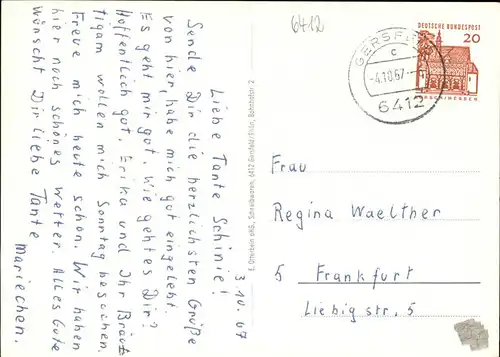 3.10.67
Liebe Tante Schinie!
Sende Dir die herzlichsten Grüße
von hier, habe mich gut eingelebt.
Es geht mir gut. Wie geht es Dir?
Hoffentlich gut. Erika und Ihr Bräut
tigam wollen mich Sonntag besuchen.
Freue mich heute schon. Wir haben
hier noch schönes Wetter. Alles Gute
wünscht Dir liebe Tante
Mariechen.
6412
GERSFELD
c
-4.10.67.-
6412
DEUTSCHE BUNDESPOST
20
LORSCH/HESSEN
Frau
Regina Waelther
5 Frankfurt
Liebig str. 5
6412 Gersfeld/Rhön,